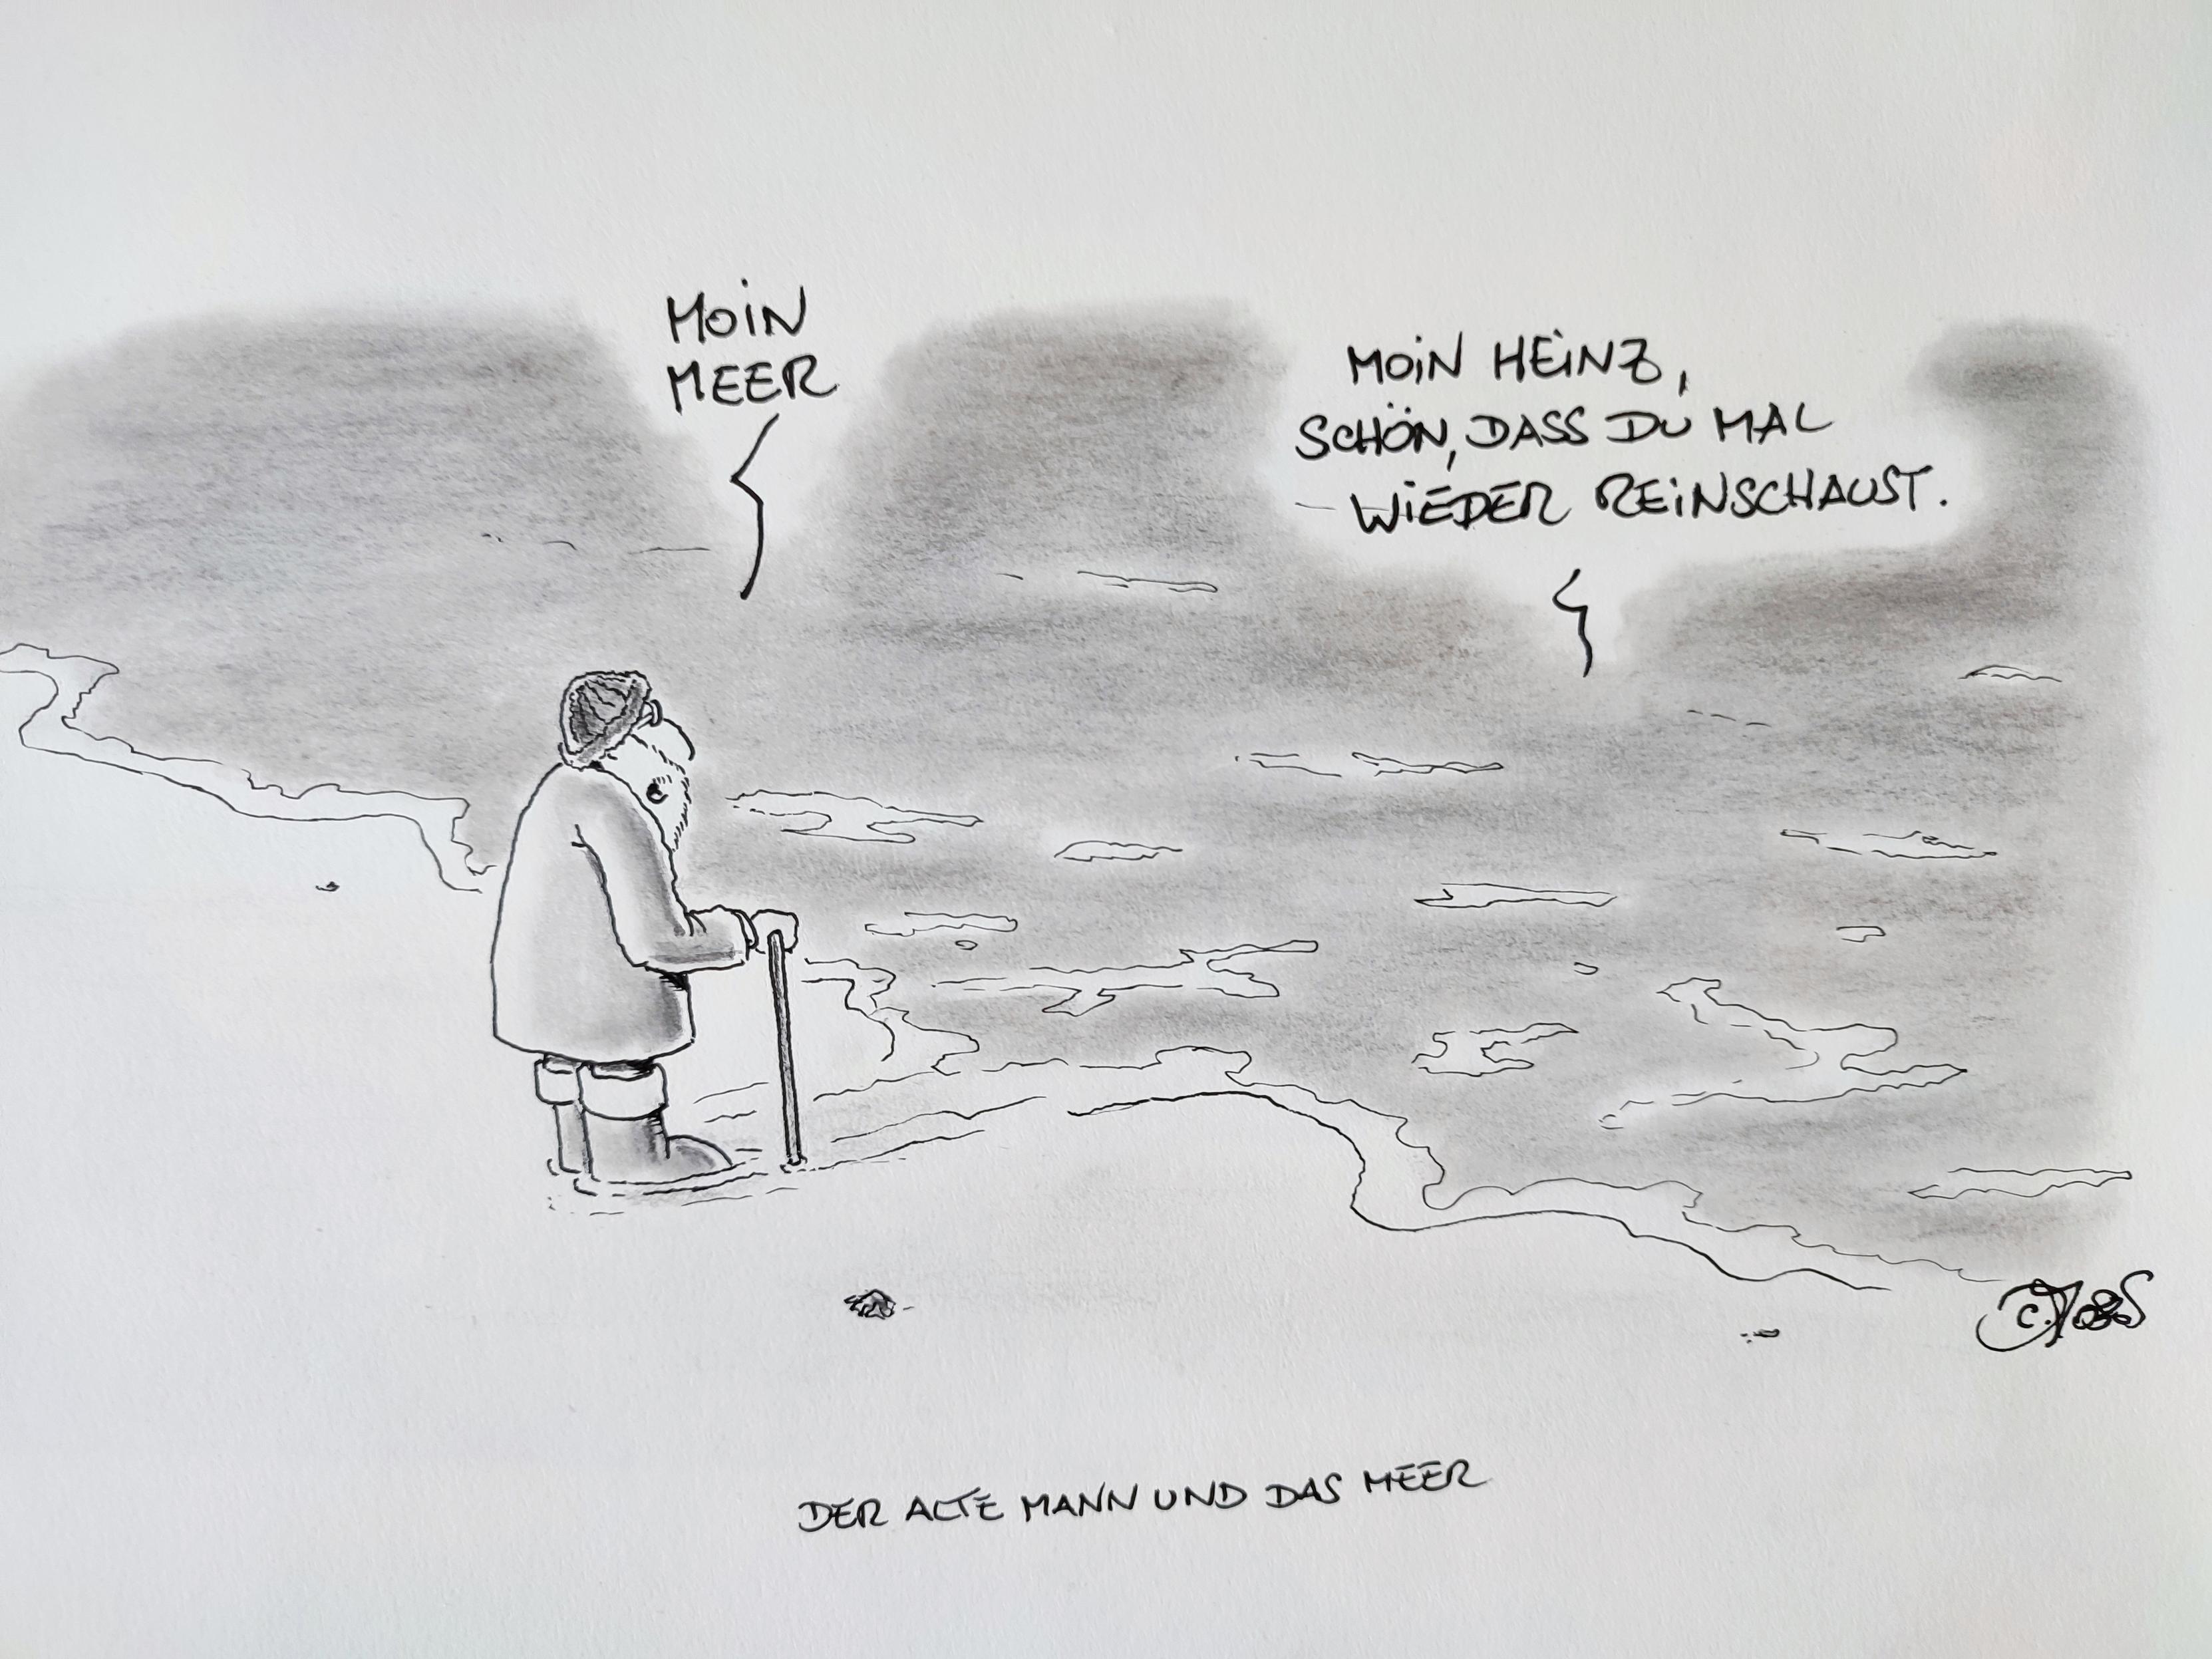 MOIN
MEER
MOIN HEINZ,
SCHÖN, DASS DU MAL
WIEDER REINSCHAUST.
DER ALTE MANN UND DAS MEER